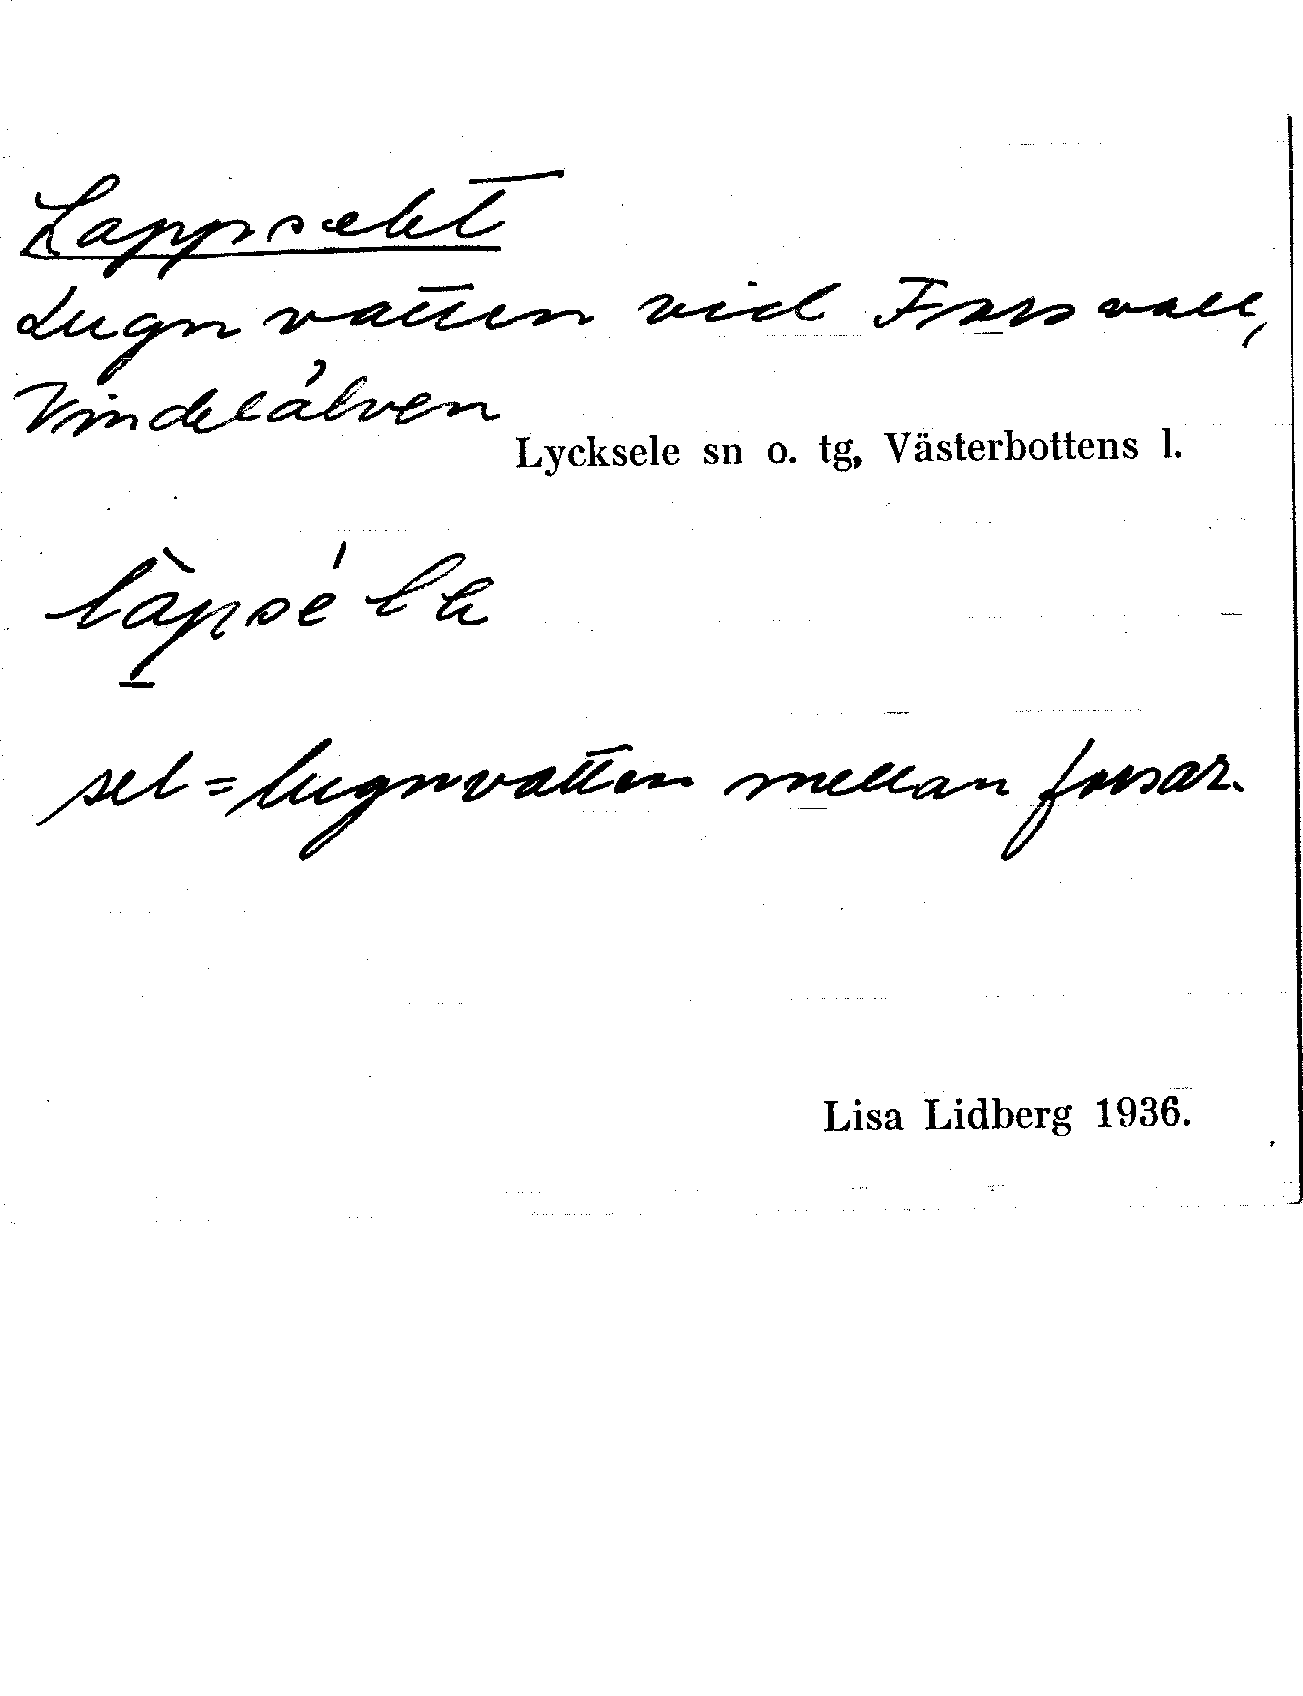 Lappselet
Lugnvatten vid Forsvall,
Vindelälven
Lycksele sn o. tg, Västerbottens l.
sel = lugnvatten mellan forsar.
Lisa Lidberg 1936.